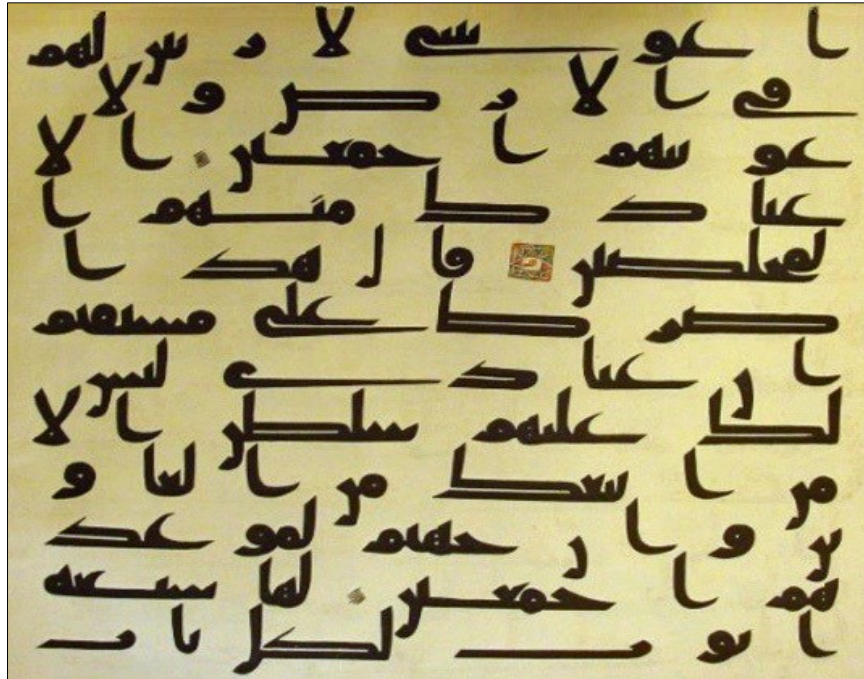 اغويتني لازينن لهم
في الارض ولا
غوينهم اجمعين الا
عبادك منهم ا
لمخلصين قال هذا
صرط علي مستقيم
ان عبادي ليس
لك عليهم سلطن الا
من اتبعك من الغاو
ين وان جهنم لموعد
هم اجمعين لها سبعة
ابوب لكل باب م